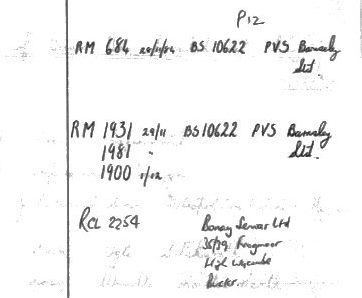 P12
RM 684 28/11/84 BS 10622 PVS Barnsley
Ltd.
RM 1931 29/11 BS 10622 PVS Barnsley
1981 " Ltd.
1900 1/02
RCL 2254 Ltd
Frogmoor
High Wycombe
Bucks.